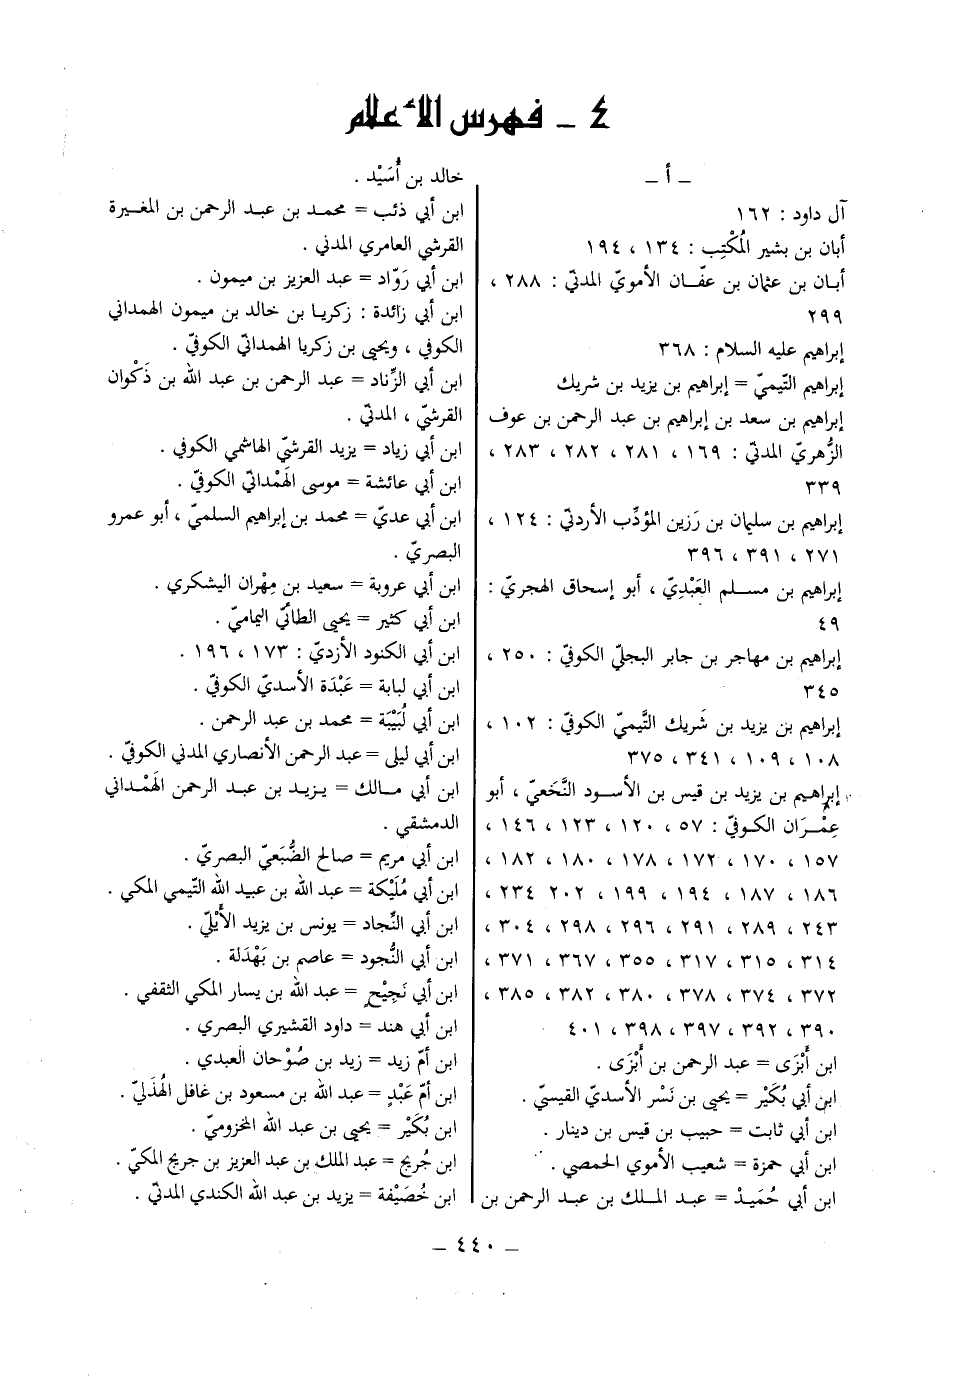 ٤ ـ فهرس الأعلام
ـ أ ـ
آل داود : ١٦٢
أبان بن بشير المُكْتِب : ١٣٤ ، ١٩٤
أبان بن عثمان بن عفّان الأمويّ المدنيّ : ٢٨٨ ،
٢٩٩
إبراهيم عليه السلام : ٣٦٨
إبراهيم التّيميّ = إبراهيم بن يزيد بن شريك
إبراهيم بن سعد بن إبراهيم بن عبد الرحمن بن عوف
الزُّهريّ المدنيّ : ١٦٩ ، ٢٨١ ، ٢٨٢ ، ٢٨٣ ،
٣٣٩
إبراهيم بن سليمان بن رَزين المؤدِّب الأردنيّ : ١٢٤ ،
٢٧١ ، ٣٩١ ، ٣٩٦
إبراهيم بن مسلم العَبْدِيّ ، أبو إسحاق الهجريّ :
٤٩
إبراهيم بن مهاجر بن جابر البجليّ الكوفيّ : ٢٥٠ ،
٣٤٥
إبراهيم بن يزيد بن شَريك التَّيميّ الكوفيّ : ١٠٢ ،
١٠٨ ، ١٠٩ ، ٣٤١ ، ٣٧٥
إبراهيم بن يزيد بن قيس بن الأسود النَّخَعيّ ، أبو
عِمْرَان الكوفيّ : ٥٧ ، ١٢٠ ، ١٢٣ ، ١٤٦ ،
١٥٧ ، ١٧٠ ، ١٧٢ ، ١٧٨ ، ١٨٠ ، ١٨٢ ،
١٨٦ ، ١٨٧ ، ١٩٤ ، ١٩٩ ، ٢٠٢ ٢٣٤ ،
٢٤٣ ، ٢٨٩ ، ٢٩١ ، ٢٩٦ ، ٢٩٨ ، ٣٠٤ ،
٣١٤ ، ٣١٥ ، ٣١٧ ، ٣٥٥ ، ٣٦٧ ، ٣٧١ ،
٣٧٢ ، ٣٧٤ ، ٣٧٨ ، ٣٨٠ ، ٣٨٢ ، ٣٨٥ ،
٣٩٠ ، ٣٩٢ ، ٣٩٧ ، ٣٩٨ ، ٤٠١
ابن أَبْزَى = عبد الرحمن بن أَبْزَى .
ابن أبي بُكَيْر = يحيى بن نَسْر الأسديّ القيسيّ .
ابن أبي ثابت = حبيب بن قيس بن دينار .
ابن أبي حمزة = شعيب الأموي الحمصي .
ابن أبي حُمَيدْ = عبد الملك بن عبد الرحمن بن
خالد بن أُسَيْد .
ابن أبي ذئب = محمد بن عبد الرحمن بن المغيرة
القرشي العامري المدني .
ابن أبي رَوّاد = عبد العزيز بن ميمون .
ابن أبي زائدة : زكريا بن خالد بن ميمون الهمداني
الكوفي ، ويحيى بن زكريا الهمدانيّ الكوفيّ .
ابن أبي الزِّناد = عبد الرحمن بن عبد الله بن ذَكْوان
القرشيّ ، المدنيّ .
ابن أبي زياد = يزيد القرشيّ الهاشمي الكوفي .
ابن أبي عائشة = موسى الهَمْدانيّ الكوفيّ .
ابن أبي عديّ = محمد بن إبراهيم السلميّ ، أبو عمرو
البصريّ .
ابن أبي عروبة = سعيد بن مِهْران اليشكري .
ابن أبي كثير = يحيى الطائيّ اليماميّ .
ابن أبي الكنود الأزديّ : ١٧٣ ، ١٩٦ .
ابن أبي لبابة = عَبْدَة الأسديّ الكوفيّ .
ابن أبي لُبَيْبَة = محمد بن عبد الرحمن .
ابن أبي ليلى = عبد الرحمن الأنصاري المدني الكوفيّ .
ابن أبي مالك = يزيد بن عبد الرحمن الهَمْداني
الدمشقي .
ابن أبي مريم = صالح الضُّبَعيّ البصريّ .
ابن أبي مُلَيْكة = عبد الله بن عبيد الله التّيمي المكي .
ابن أبي النِّجاد = يونس بن يزيد الأَيْليّ .
ابن أبي النُّجود = عاصم بن بَهْدَلة .
ابن أبي نَجِيْحٍ = عبد الله بن يسار المكي الثقفي .
ابن أبي هند = داود القشيري البصري .
ابن أمّ زيد = زيد بن صُوْحان العبدي .
ابن أمّ عَبْدٍ = عبد الله بن مسعود بن غافل الهُذَليّ .
ابن بُكَيْر = يحيى بن عبد الله المخزوميّ .
ابن جُريج = عبد الملك بن عبد العزيز بن جريج المكيّ .
ابن خُصَيْفة = يزيد بن عبد الله الكندي المدنيّ .
ـ ٤٤٠ ـ